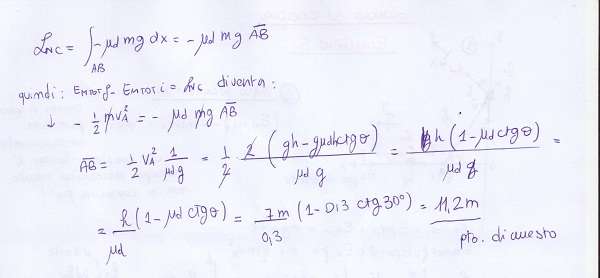 ℒNC = ∫AB -μd mg dx = - μd mg A̅B̅
quindi: EMTOT f - EMTOT i = ℒNC diventa:
↓ - 1/2 mvA² = - μd mg A̅B̅
A̅B̅ = 1/2 VA² 1/(μd g) = 1/2 2(gh - gμdh ctgθ)/(μd g) = gh(1 - μd ctgθ)/(μd g) =
= h/μd (1 - μd ctgθ) = 7m/0,3 (1 - 0,3 ctg 30°) = 11,2 m
pto. di arresto